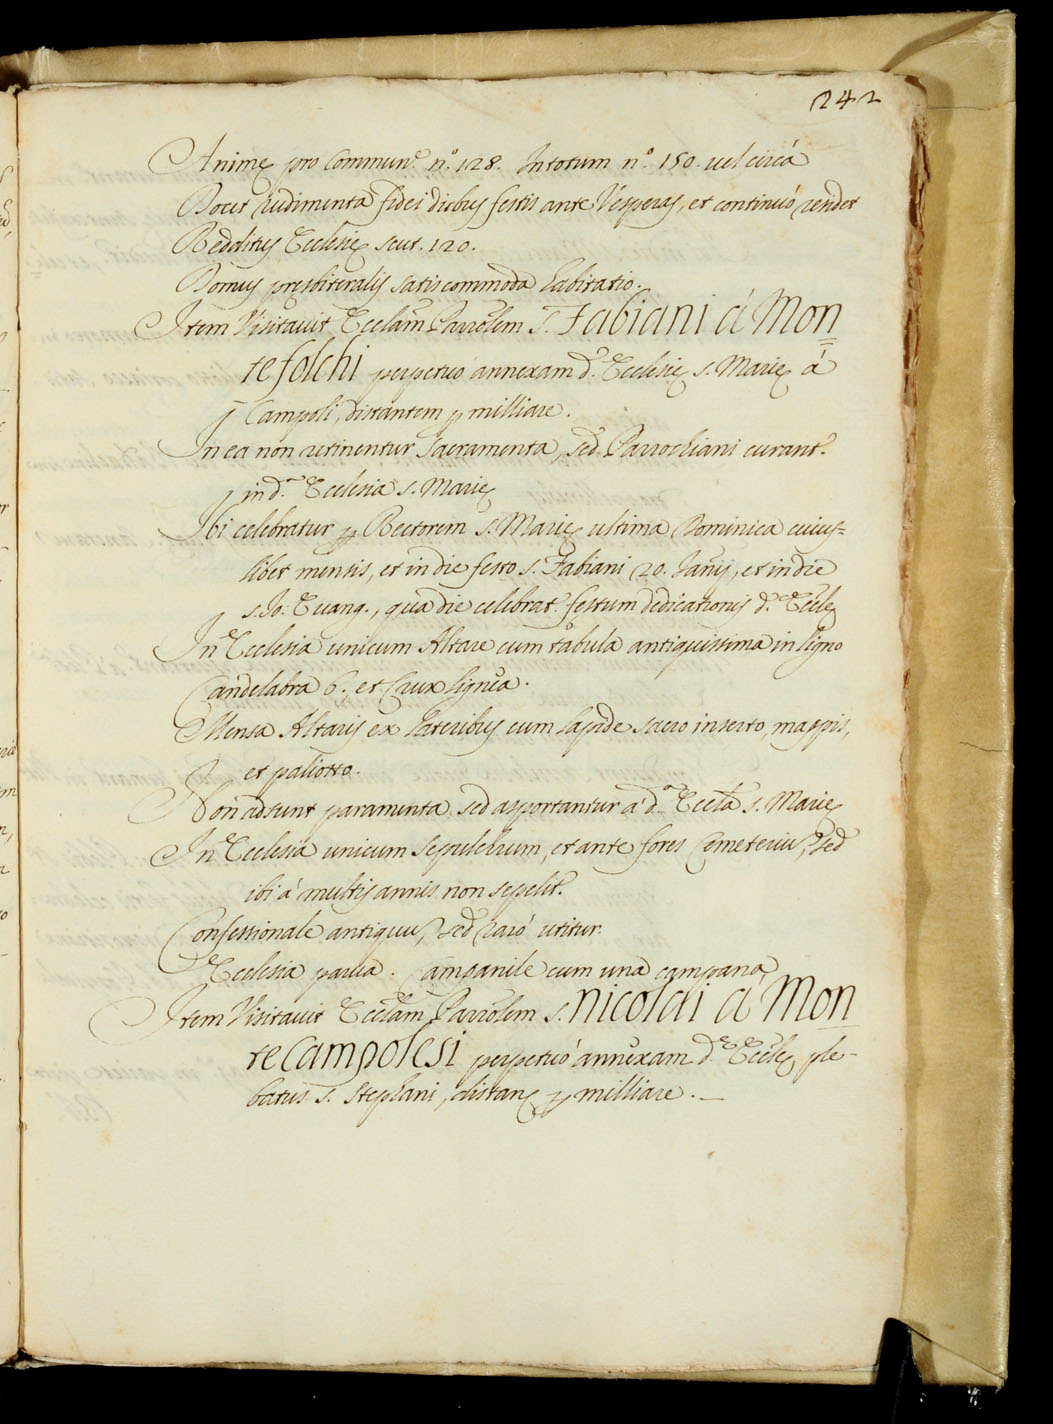 242
Animę pro Commun.ᵉ n.º 128. Intotum n.º 150. uel circà
Docet rudimenta fidei diebus festis ante Vésperas, et continuò
Redditus Ecclesię scut. 120.
Domus presbiteralis satis commoda habitatio.
Item Visitauit Ecclam Parrolem S. Fabiani à Mon=
tefolchi perpetuò annexam d.ᵉ Ecclesię s. Marię à
Campoli, distantem p milliare.
In ea non retinentur Sacramenta, sed Parrochiani curant.ʳ
in d.ᵃ Ecclesia s. Marię
Ibi celebratur p Rectorem s. Marię ultima Dominica cuius=
libet mensis, et in die festo s. Fabiani 20. Ianij, et in die
s. Io: Euang., qua die celebrat.ʳ festum dedicationis d.ᵉ Eccłę
In Ecclesia unicum Altare cum tabula antiquissima in ligno
Candelabra 6., et Crux lignea.
Mensa Altaris ex lateribus cum lapide sacro inserto, mappis,
et paliotto.
Non adsunt paramenta, sed asportantur à d.ᵃ Eccła s. Marię
In Ecclesia unicum sepulchrum, et ante fores Cemeteriu, sed
ibi à multis annis non sepelit.ʳ
Confessionale antiquu, sed rarò utitur.
Ecclesia parua. Campanile cum una campana,
Item Visitauit Ecclam Parrolem s. Nicolai à Mon
te Campolesi perpetuò annexam d.ᵉ Eccłę ple-
batus s. Stephani, distan p milliare. —